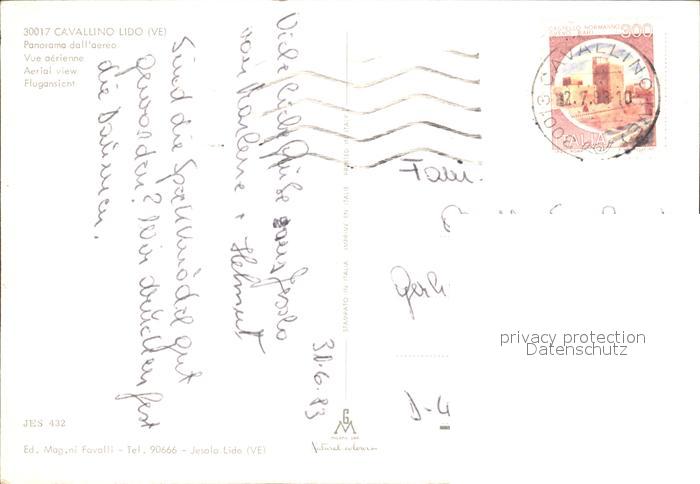 30017 CAVALLINO LIDO (VE)
Panorama dall'aereo
Vue aérienne
Aerial view
Flugansicht
Viele liebe Grüße aus Jesolo
von Marlene + Helmut
Sind die
geworden? Wir drückten fest
die Daumen.
CASTELLO NORMANNO
SVEVO BARI
300
ITALIA
30013 CAVALLINO (VE)
Fam.
Gerh
D-4
privacy protection
Datenschutz
STAMPATO IN ITALIA IMPRIMÉ EN ITALIE PRINTED IN ITALY
GM
Natural colour
JES 432
Ed. Mag.ni Favalli - Tel. 90666 - Jesolo Lido (VE)